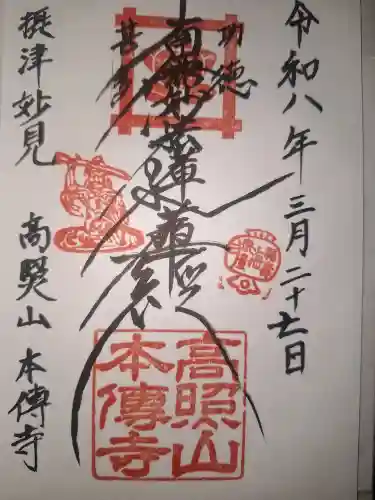 令和八年三月二十七日
功徳
南無妙法蓮華経
甚多
摂津妙見 高照山 本傳寺
高照山
本傳寺